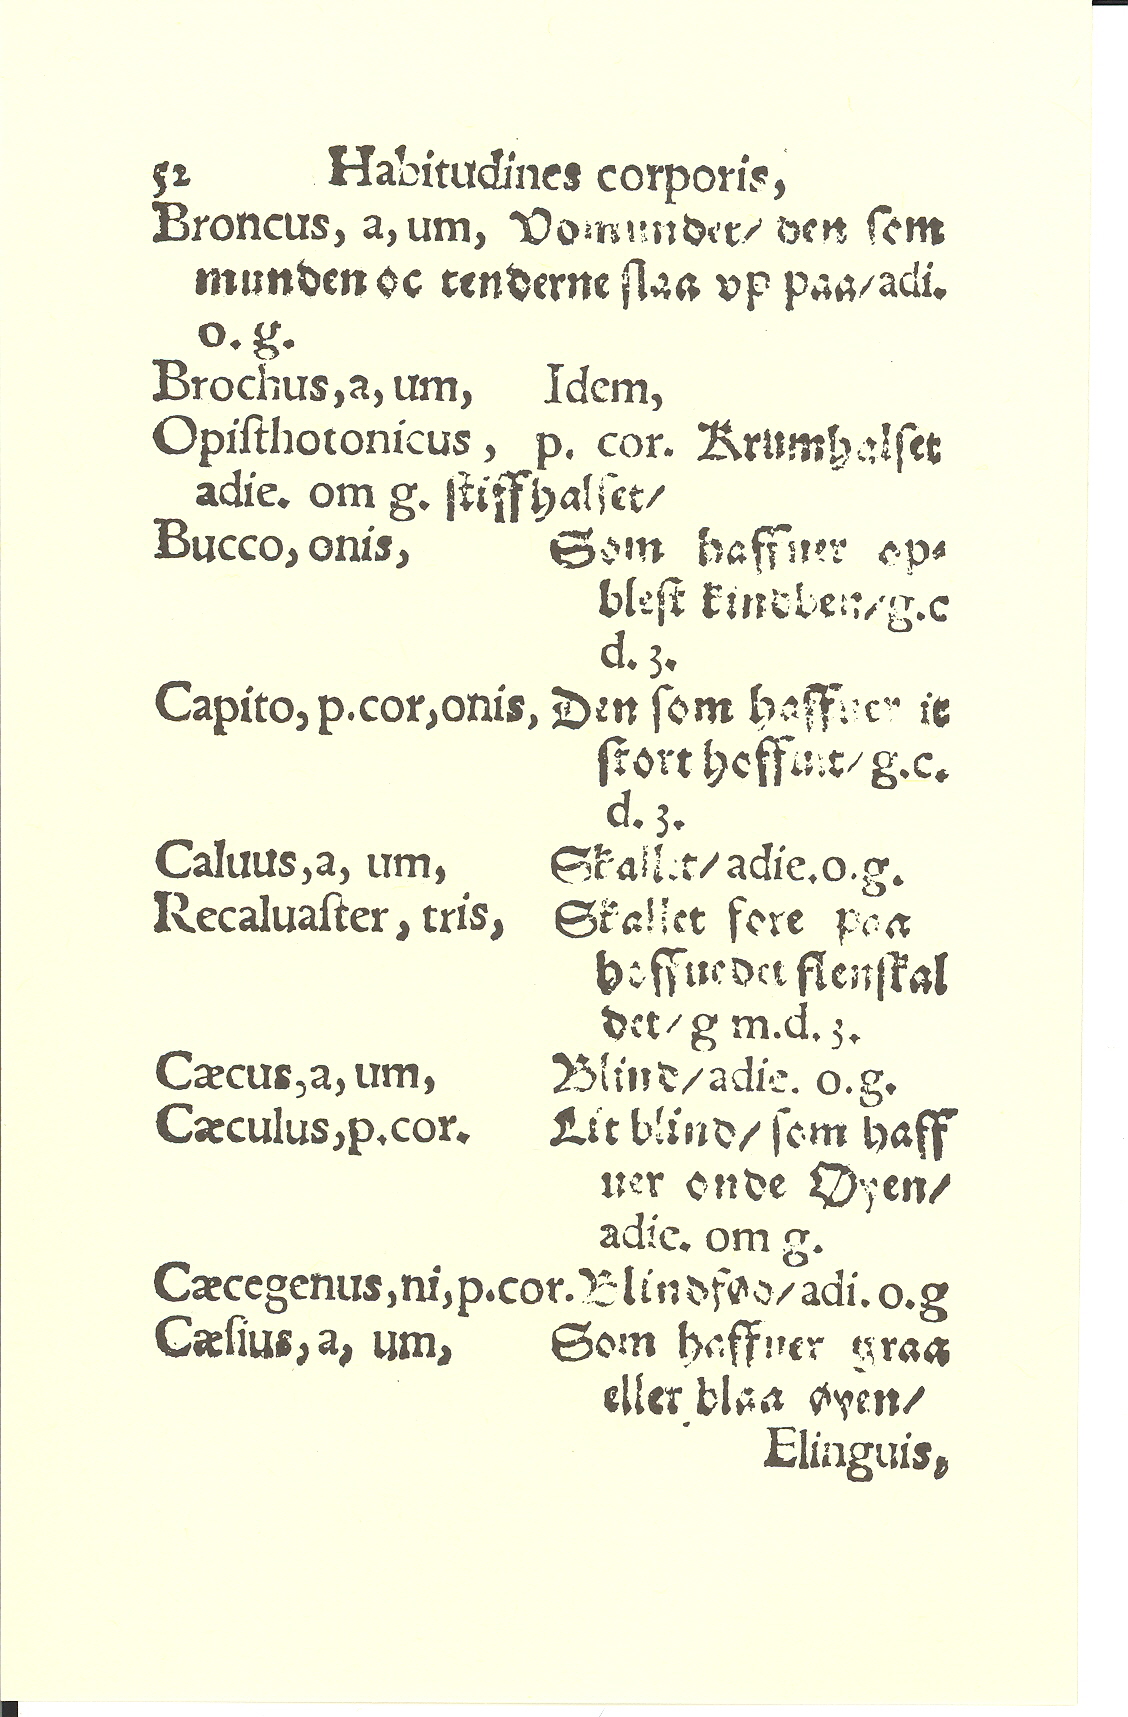 52 Habitudines corporis,
Broncus, a, um, Vomundet/ den som
munden oc tenderne slaa vp paa/ adi.
o. g.
Brochus, a, um, Idem,
Opiſthotonicus, p. cor. Krumhalſet
adie. om g. ſtiffhalſet/
Bucco, onis, Som haffuer op⸗
bleſt kindben/ g.c
d. 3.
Capito, p.cor, onis, Den ſom haffuer it
ſtort hoffuit/ g.c.
d. 3.
Caluus, a, um, Skallet/ adie. o. g.
Recaluaſter, tris, Skallet fore paa
hoffuedet flenſkal
det/ g m.d. 3.
Cæcus, a, um, Blind/ adie. o.g.
Cæculus, p.cor. Lit blind/ ſom haff
uer onde Øyen/
adie. om g.
Cæcegenus, ni, p.cor. Blindfød/ adi. o.g
Cæſius, a, um, Som haffuer graa
eller blaa øyen/
Elinguis,